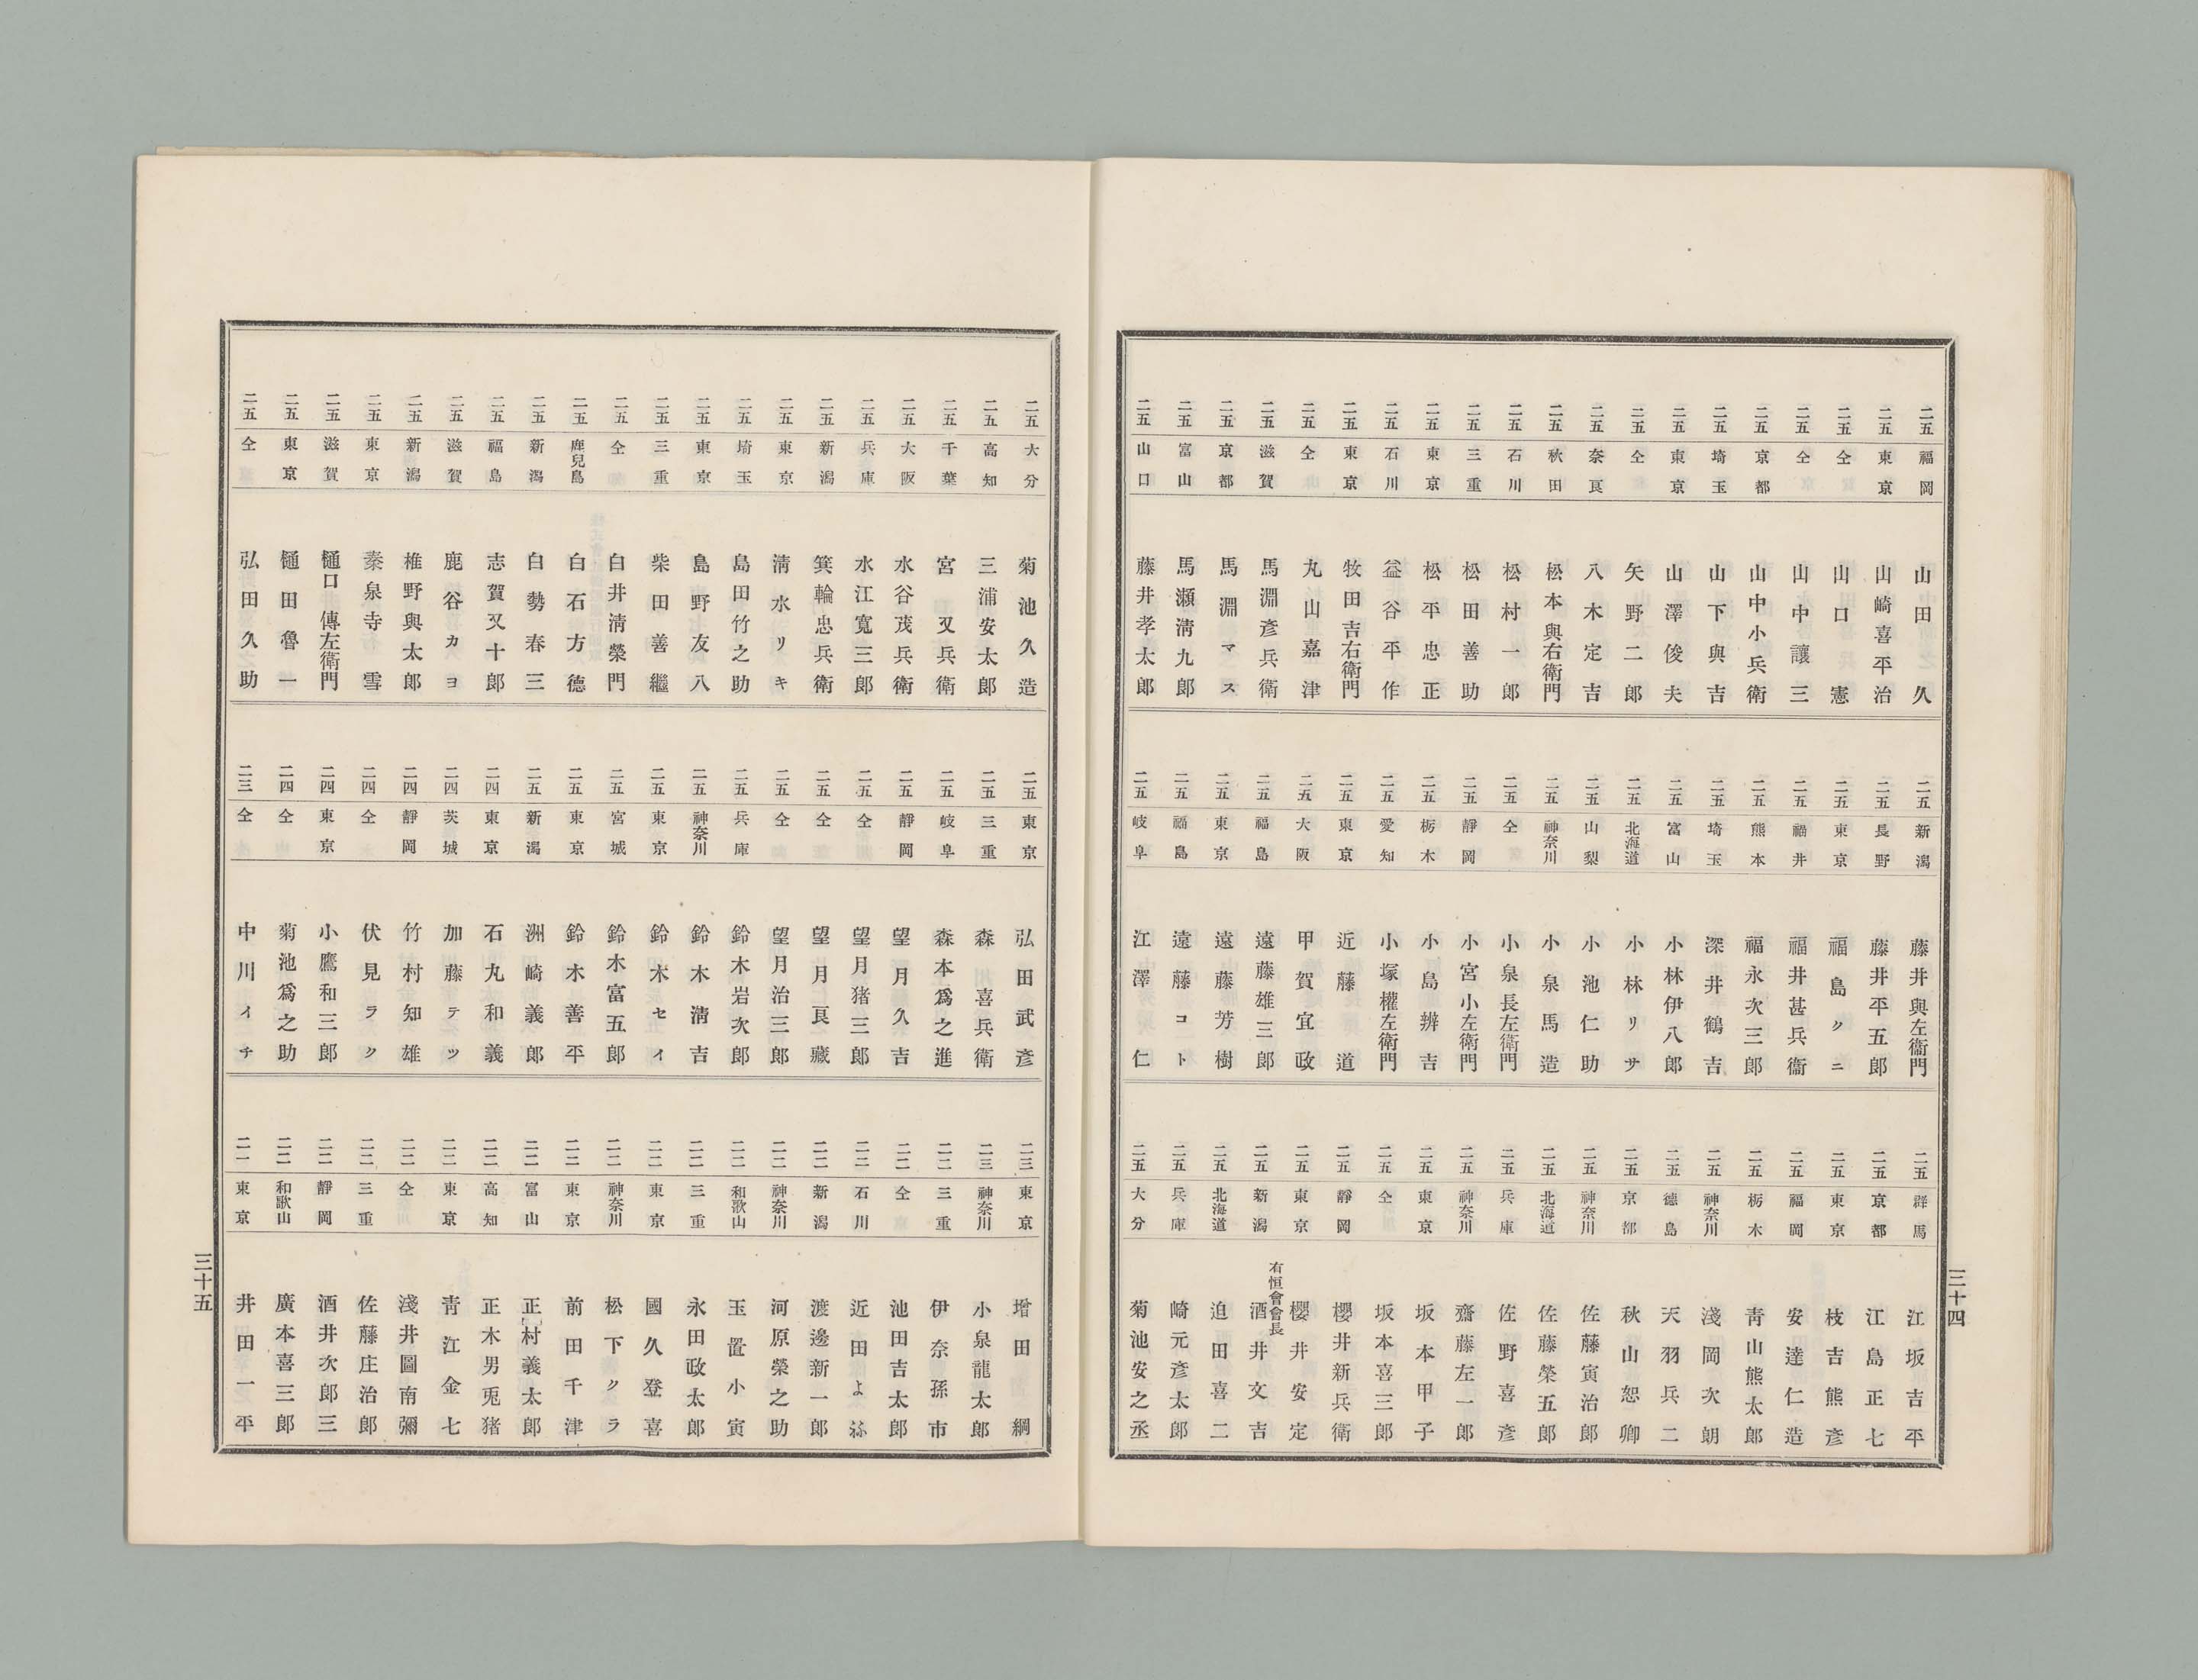 二五 福岡 山田久
二五 東京 山崎喜平治
二五 仝 山口憲
二五 仝 山中讓三
二五 京都 山中小兵衛
二五 埼玉 山下與吉
二五 東京 山澤俊夫
二五 仝 矢野二郎
二五 奈良 八木定吉
二五 秋田 松本與右衛門
二五 石川 松村一郎
二五 三重 松田善助
二五 東京 松平忠正
二五 石川 益谷平作
二五 東京 牧田吉右衛門
二五 仝 丸山嘉津
二五 滋賀 馬淵彥兵衛
二五 京都 馬淵マス
二五 富山 馬瀬淸九郎
二五 山口 藤井孝太郎
二五 新潟 藤井與左衞門
二五 長野 藤井平五郎
二五 東京 福島クニ
二五 福井 福井甚兵衞
二五 熊本 福永次三郎
二五 埼玉 深井鶴吉
二五 富山 小林伊八郎
二五 北海道 小林リサ
二五 山梨 小池仁助
二五 神奈川 小泉馬造
二五 仝 小泉長左衛門
二五 靜岡 小宮小左衛門
二五 栃木 小島辨吉
二五 愛知 小塚權左衛門
二五 東京 近藤道
二五 大阪 甲賀宜政
二五 福島 遠藤雄三郎
二五 東京 遠藤芳樹
二五 福島 遠藤コト
二五 岐阜 江澤仁
二五 群馬 江坂吉平
二五 京都 江島正七
二五 東京 枝吉熊彥
二五 福岡 安達仁造
二五 栃木 靑山熊太郎
二五 神奈川 淺岡次朗
二五 德島 天羽兵二
二五 京都 秋山恕卿
二五 神奈川 佐藤寅治郎
二五 北海道 佐藤榮五郎
二五 兵庫 佐野喜彥
二五 神奈川 齋藤左一郎
二五 東京 坂本甲子
二五 仝 坂本喜三郎
二五 靜岡 櫻井新兵衛
二五 東京 櫻井安定
二五 新潟 有恒會會長 酒井文吉
二五 北海道 迫田喜二
二五 兵庫 崎元彥太郎
二五 大分 菊池安之丞
三十四
二五 大分 菊池久造
二五 高知 三浦安太郎
二五 千葉 宮又兵衛
二五 大阪 水谷茂兵衛
二五 兵庫 水江寬三郎
二五 新潟 箕輪忠兵衛
二五 東京 淸水リキ
二五 埼玉 島田竹之助
二五 東京 島野友八
二五 三重 柴田善繼
二五 仝 白井淸榮門
二五 鹿兒島 白石方德
二五 新潟 白勢春三
二五 福島 志賀又十郎
二五 滋賀 鹿谷カヨ
二五 新潟 椎野與太郎
二五 東京 秦泉寺雪
二五 滋賀 樋口傳左衛門
二五 東京 樋田魯一
二五 仝 弘田久助
二五 東京 弘田武彥
二五 三重 森喜兵衛
二五 岐阜 森本爲之進
二五 靜岡 望月久吉
二五 仝 望月猪三郎
二五 仝 望月良藏
二五 仝 望月治三郎
二五 兵庫 鈴木岩次郎
二五 神奈川 鈴木淸吉
二五 東京 鈴木セイ
二五 宮城 鈴木富五郎
二五 東京 鈴木善平
二五 新潟 洲崎義郎
二四 東京 石丸和義
二四 茨城 加藤テツ
二四 靜岡 竹村知雄
二四 仝 伏見ラク
二四 東京 小鷹和三郎
二四 仝 菊池爲之助
二三 仝 中川イチ
二三 東京 增田綱
二三 神奈川 小泉龍太郎
二二 三重 伊奈孫市
二二 仝 池田吉太郎
二二 石川 近田よ祢
二二 新潟 渡邊新一郎
二二 神奈川 河原榮之助
二二 和歌山 玉置小寅
二二 三重 永田政太郎
二二 東京 國久登喜
二二 神奈川 松下クラ
二二 東京 前田千津
二二 富山 正村義太郎
二二 高知 正木男兎猪
二二 東京 靑江金七
二二 仝 淺井圖南彌
二二 三重 佐藤庄治郎
二二 靜岡 酒井次郎三
二二 和歌山 廣本喜三郎
二一 東京 井田一平
三十五